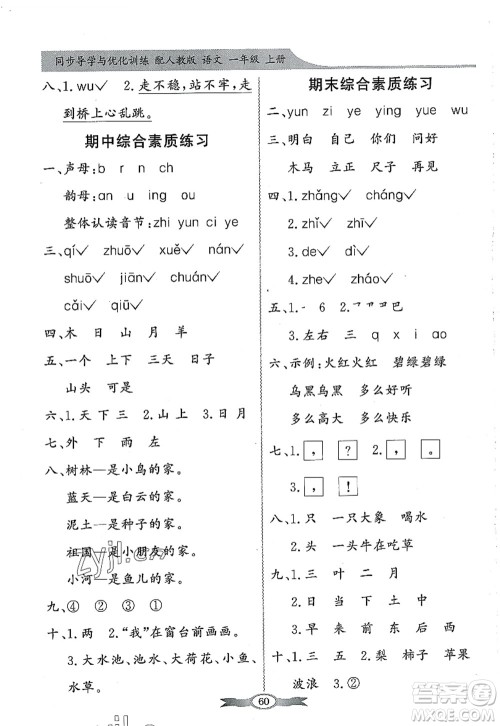 同步导学与优化训练 配人教版 语文 一年级 上册
八、1. wu✓ 2. 走不稳，站不牢，走
到桥上心乱跳。
期中综合素质练习
一、声母：b r n ch
韵母：an ou ing ou
整体认读音节：zhi yun ci ye
三、qí✓ zhuō✓ xuě✓ nán✓
shuō✓ jiān✓ zhōng✓
cǎi✓ qiū✓
四、木 日 山 月 羊
五、一个 上下 三天 日子
山头 可是
六、1. 天 下 三 2. 山 上 3. 月 日
七、外 下 雨 南
八、树林—是小鸟的家。
蓝天—是白云的家。
泥土—是种子的家。
祖国—是小朋友的家。
小河—是鱼儿的家。
九、④ ② ① ③
十、1. 两 2. “我”在窗台前画画。
3. 大水池、池边、垂柳、小鱼、
水草。
期末综合素质练习
二、yun zi ye ying yue wu
三、明白 自己 你们 问好
木马 立正 尺子 再见
四、1. zhǎng✓ cháng✓
2. zhǐ✓ zhī✓
3. de✓ dé✓
4. zhe✓ zháo✓
五、1. 6 2.
3. 左右 三 q x i ao
六、示例：火红火红 碧绿碧绿
乌黑乌黑 多么好听
多么高大 多么快乐
七、1. ， ？ 2. 。
3. ， ！
八、1. 只 一只大象 喝水
2. 头 一头牛在吃草
九、1. 三 叶 二 月
2. 日 当 下 土
3. 早 来 前 东 南 北
十、1. 前 五 2. 梨 柿子 苹果
波浪 3. ②
60